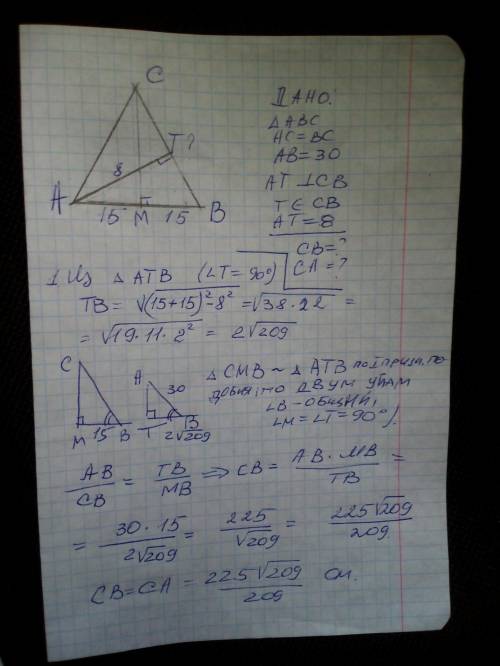 C
T?
8
A
15 M 15 B
ДАНО:
△ABC
AC = BC
AB = 30
AT ⊥ CB
T ∈ CB
AT = 8
CB = ?
CA = ?
1. Из △ ATB (∠T = 90°)
TB = √((15+15)² - 8²) = √(38·22) =
= √(19·11·2²) = 2√209
C
M 15 B
A
30
T 2√209 B
△ CMB ~ △ ATB по I призн. по-
добия, по двум углам
∠B - общий,
∠M = ∠T = 90°).
AB/CB = TB/MB ⇒ CB = AB · MB/TB =
= 30·15/2√209 = 225/√209 = 225√209/209
CB = CA = 225√209/209 см.